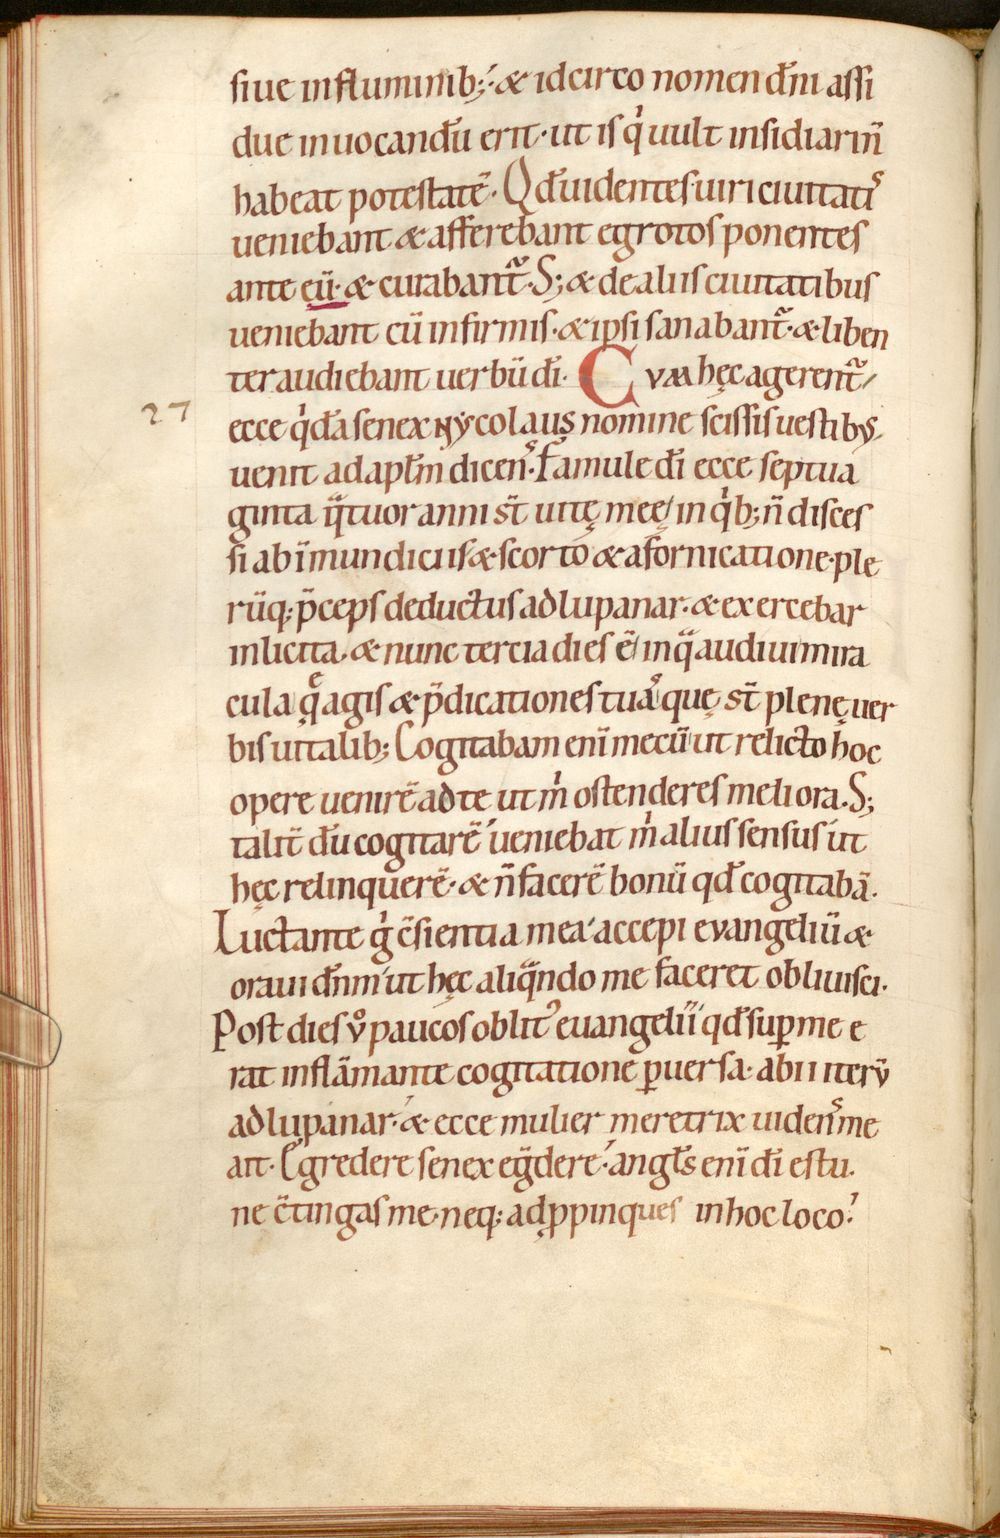 siue in fluminib;: & idcirco nomen dn̄i assi
due inuocandū erit· ut is qͥ uult insidiari n̄
habeat potestatē· Qd̄ uidentes uiri ciuitatis
ueniebant & afferebant egrotos ponentes
ante eū· & curabant᷑· S; & de aliis ciuitatibus
ueniebant cū infirmis· & ipsi sanabant᷑· & liben
ter audiebant uerbū dī· CVM hęc agerent᷑/
27
ecce qͥdā senex nycolaus nomine scissis uestibꝰ
uenit ad aplm̄ dicens· Famule dī ecce septua
ginta qͣtuor anni st̄ uitę meę/ in qͥb; n̄ disces
si ab īmundiciis & scorto & a fornicatione· ple
rūq; p̄ceps deductus ad lupanar· & exercebar
inlicita· & nunc tercia dies ē/ in qͣ audiui mira
cula qͣę agis & p̄dicationes tuas quę st̄ plenę uer
bis uitalib; Cogitabam enī mecū ut relicto hoc
opere uenirē ad te ut mͥ ostenderes meliora· S;
talit̄ dū cogitarē ueniebat mͥ alius sensus ut
hęc relinquerē· & n̄ facerē bonū qd̄ cogitabā·
Luctante gͥ c̄sientia mea accepi evangeliū &
oraui dn̄m ut hęc aliqͣndo me faceret obliuisci·
Post dies ṽo paucos oblitꝰ euangelii qd̄ sup̄ me e
rat inflāmante cogitatione ꝑuersa· abii iterū
ad lupanar· & ecce mulier meretrix uidens me
ait· Egredere senex egͣdere· angls̄ enī dī es tu·
ne c̄tingas me· neq; adꝓpinques in hoc loco·